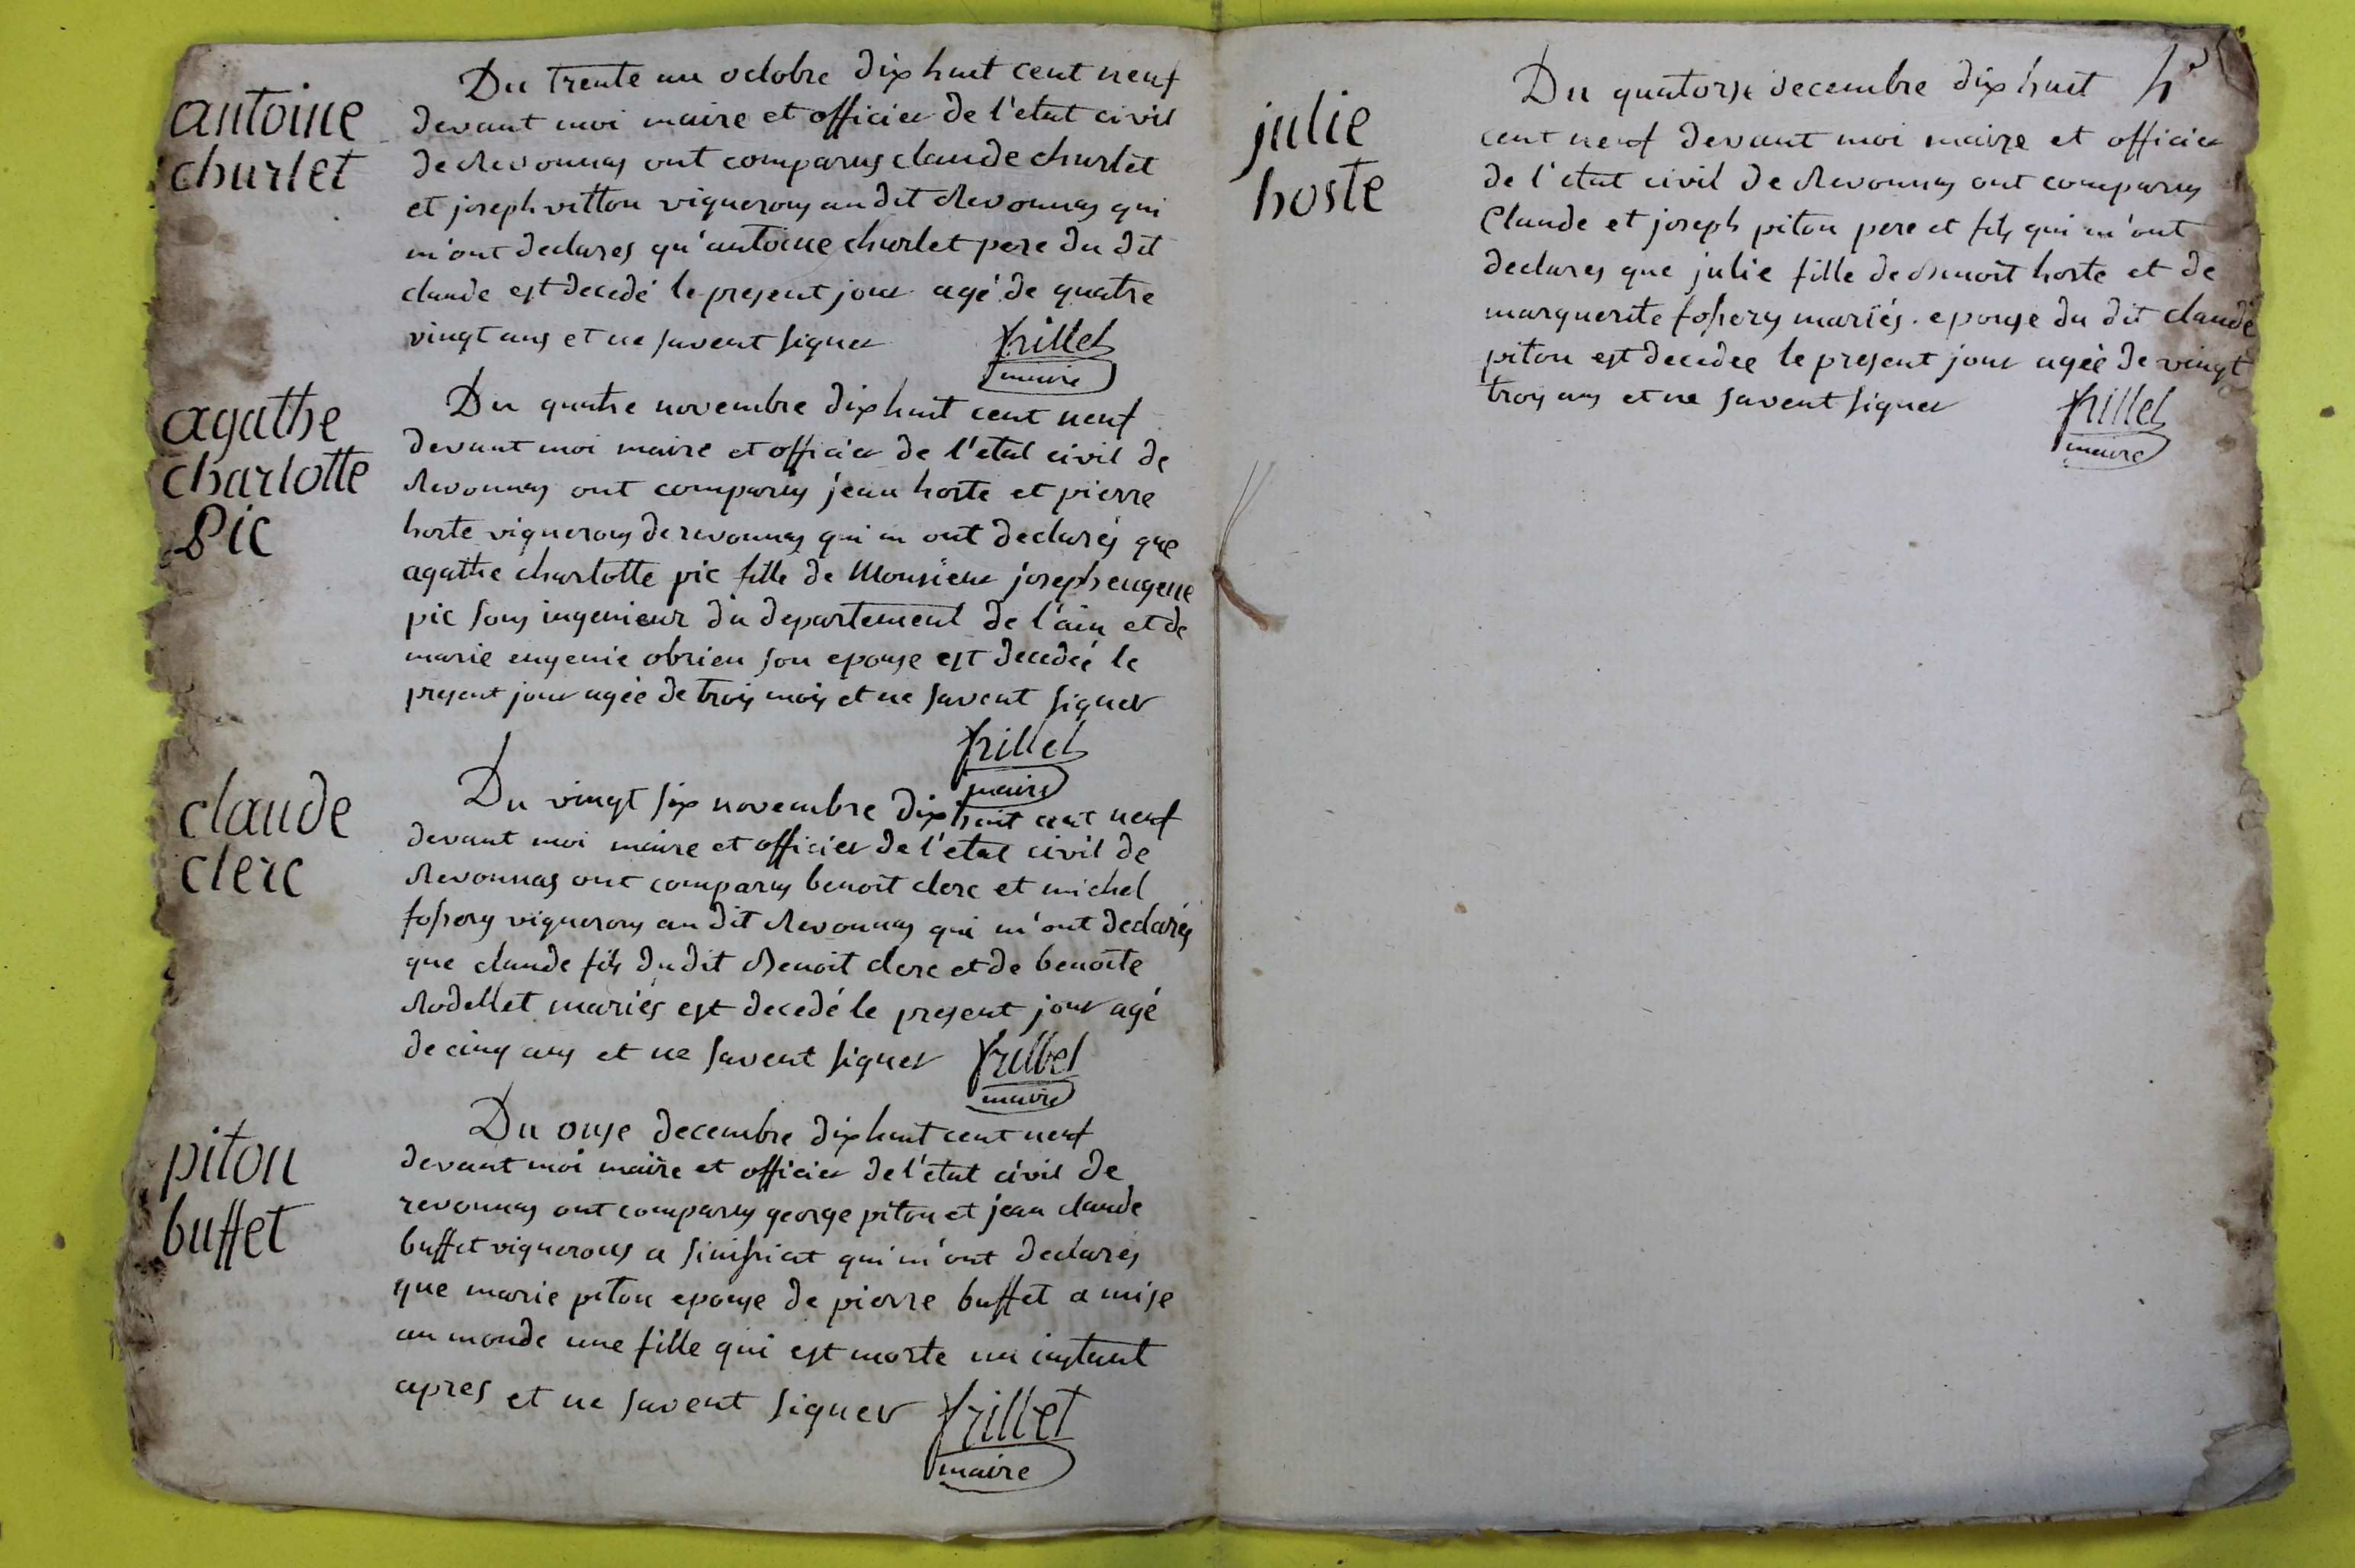 antoine
churlet
Du trente un octobre dix huit cent neuf
devant moi maire et officier de l'etat civil
de Revonnas ont comparus claude churlet
et joseph vitton vignerons au dit Revonnas qui
m'ont declares qu'antoine churlet pere du dit
claude est decedé le present jour agé de quatre
vingt ans et ne savent signer
frillet
maire
agathe
charlotte
Pic
Du quatre novembre dix huit cent neuf
devant moi maire et officier de l'etat civil de
Revonnas ont comparus jean hoste et pierre
hoste vignerons de revonnas qui m ont declarés que
agathe charlotte pic fille de Monsieur joseph eugene
pic sous ingenieur du departement de l'ain et de
marie eugenie obrien son epouse est decedeé le
present jour agèe de trois mois et ne savent signer
frillet
maire
claude
clerc
Du vingt six novembre dix huit cent neuf
devant moi maire et officier de l'etat civil de
Revonnas ont comparus benoit clerc et michel
fossery vignerons au dit Revonnas qui m'ont declarés
que claude fils du dit Benoit clerc et de benoite
Rodellet mariés est decedé le present jour agé
de cinq ans et ne savent signer
frillet
maire
piton
buffet
Du onse decembre dix huit cent neuf
devant moi maire et officier de l'etat civil de
revonnas ont comparus george piton et jean claude
buffet vignerons a sinissiat qui m'ont declarés
que marie piton epouse de pierre buffet a mise
au monde une fille qui est morte un instant
apres et ne savent signer
frillet
maire
julie
hoste
Du quatorse decembre dix huit
cent neuf devant moi maire et officier
de l'etat civil de Revonnas ont comparus
Claude et joseph piton pere et fils qui m'ont
declares que julie fille de Benoit hoste et de
marguerite fossery mariés. epouse du dit claude
piton est decedee le present jour agée de vingt
trois ans et ne savent signer
frillet
maire